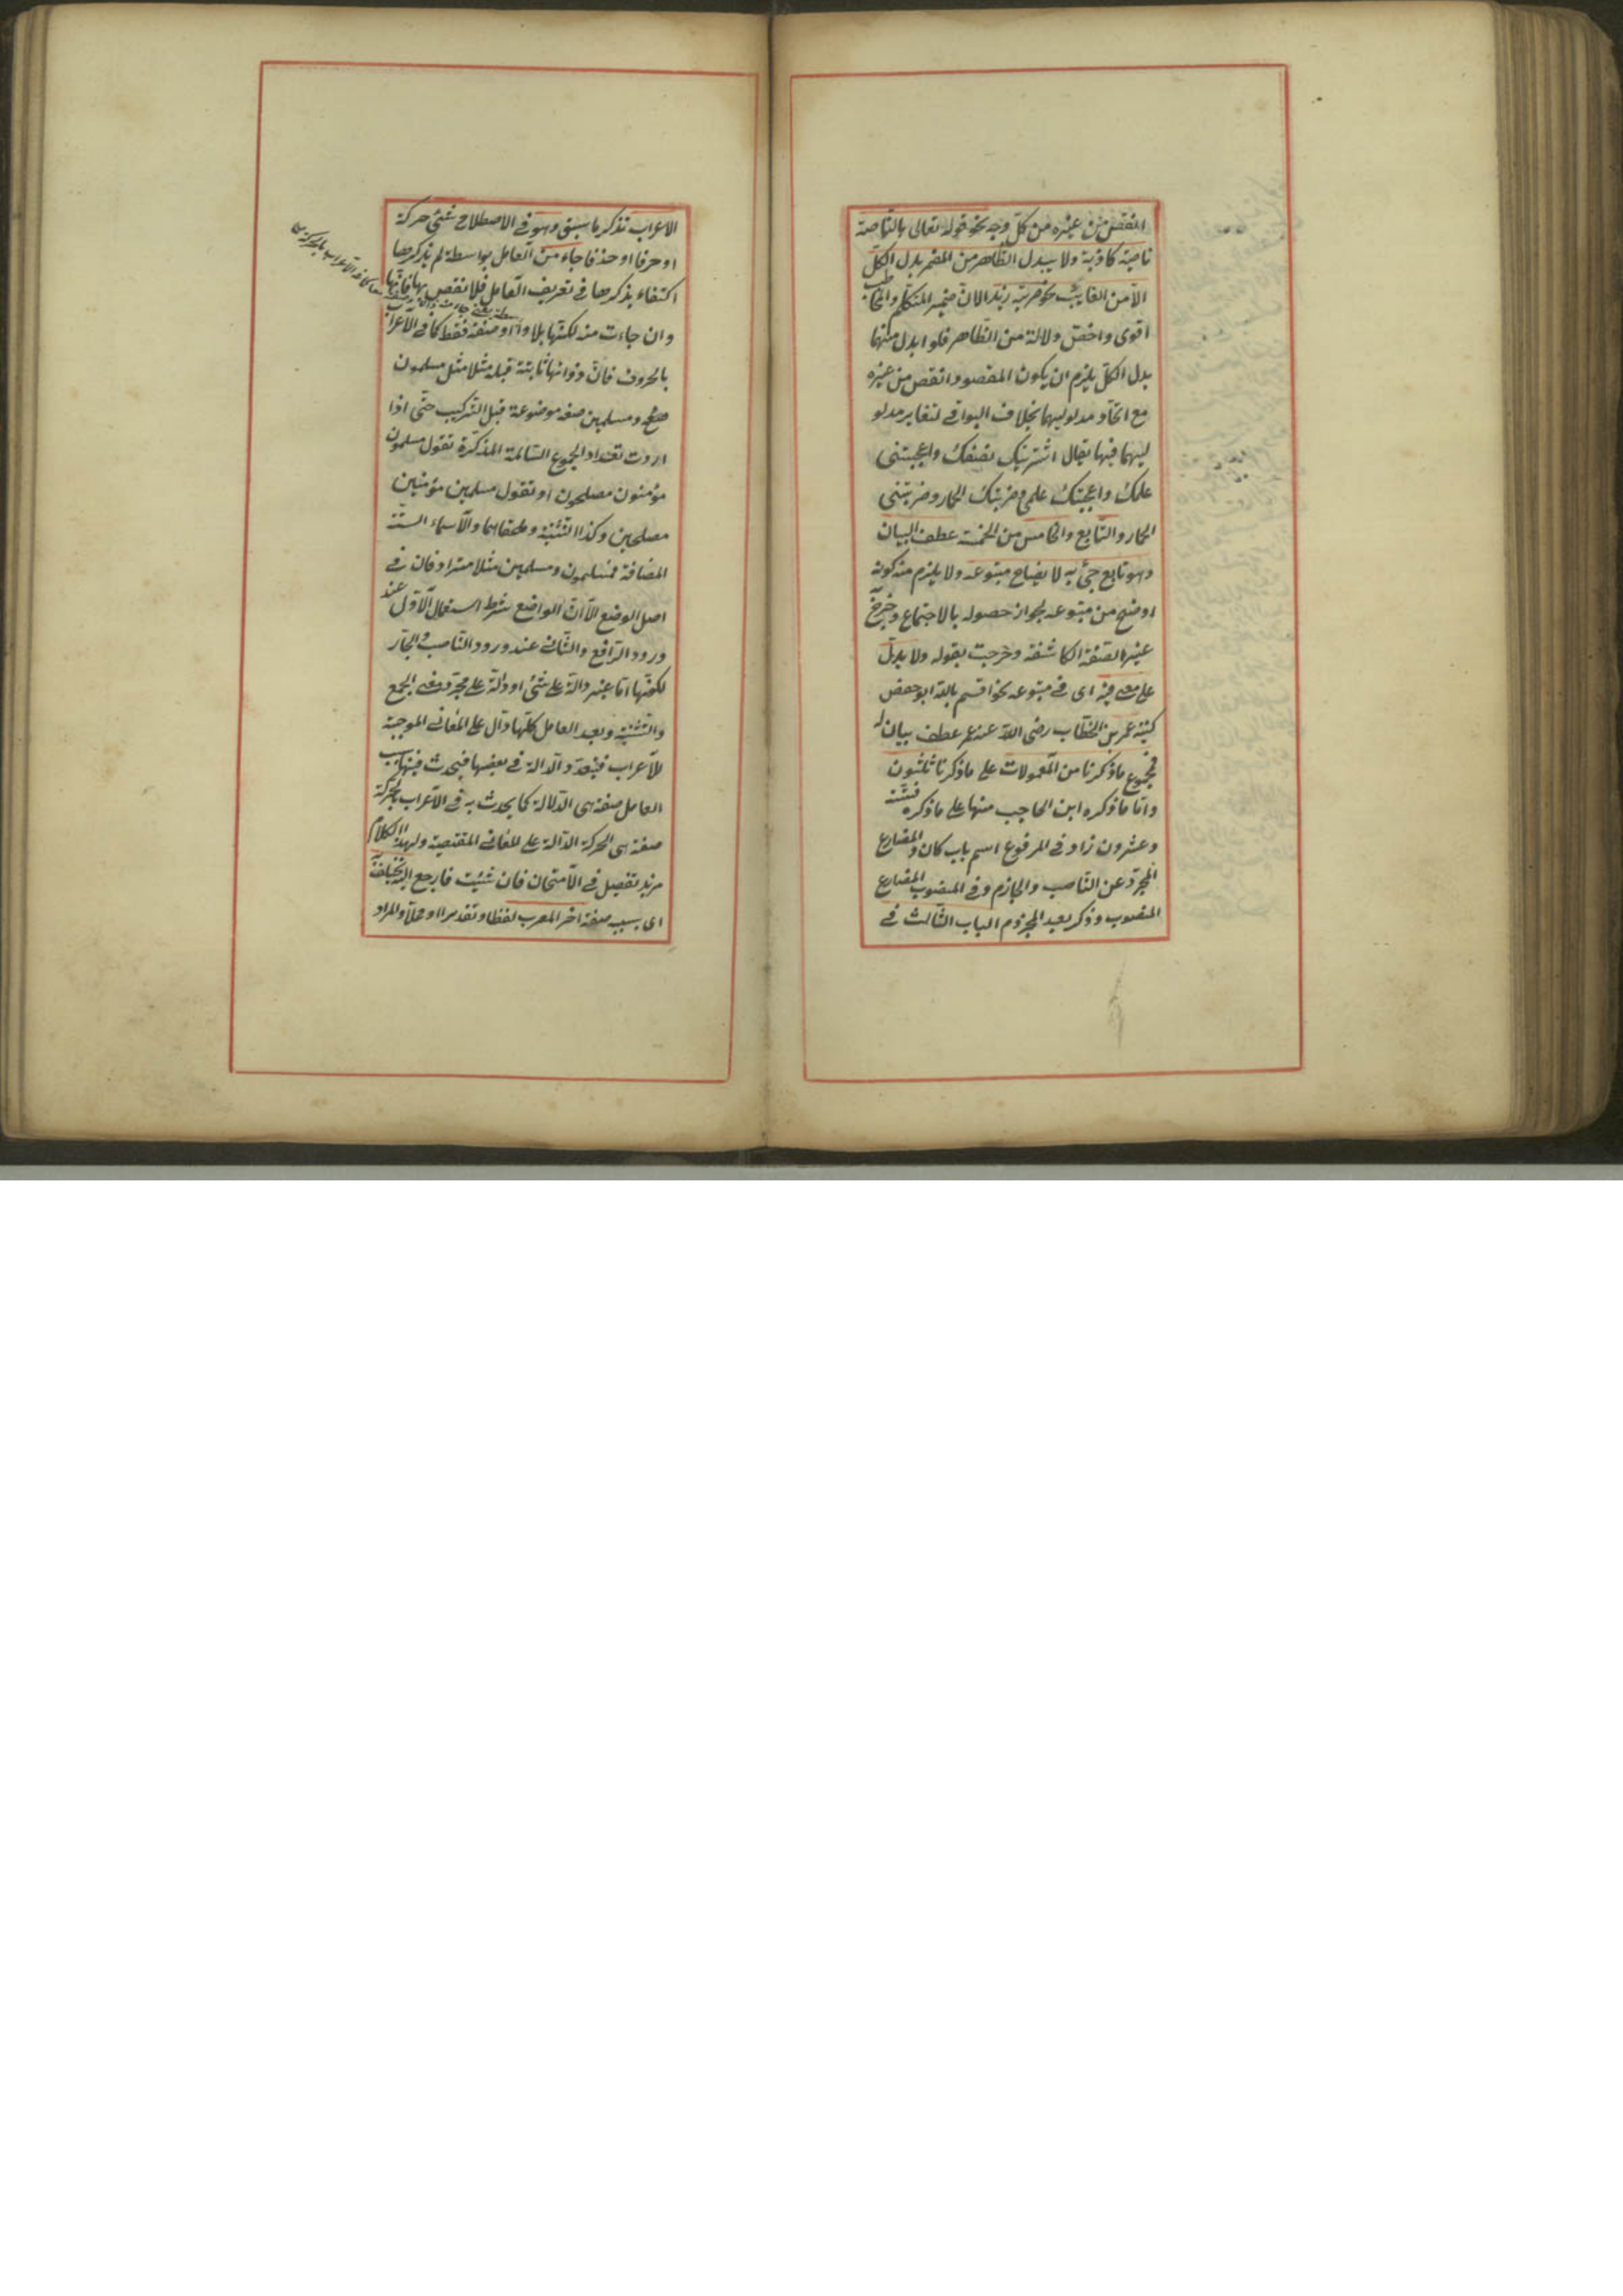 انقص من غيره من كلّ وجه نحو قوله تعالى بالنّاصية
ناصية كاذبة ولا يبدل الظّاهر من المضمر بدل الكلّ
الّا من الغايب نحو ضربته زيدا لانّ ضمير المتكلّم والمخاطب
اقوى واخصّ دلالة من الظّاهر فلو ابدل منهما
بدل الكلّ يلزم ان يكون المقصود انقص من غيره
مع اتّحاد مدلوليهما بخلاف البواقى لتغاير مدلو
ليهما فيها يقال اشتريتك نصفك واعجبتنى
علمك واعجبتك علمى وضربتك الحمار وضربتنى
الحمار والتّابع والخامس من الخمسة عطف البيان
وهو تابع جئ به لايضاح متبوعه ولا يلزم منه كونه
اوضح من متبوعه لجواز حصوله بالاجتماع وخرج
غير الصّفة الكاشفة وخرجت بقوله ولا يدلّ
على معنى فيه اى فى متبوعه نحو اقسم بالله ابو حفص
كنية عمر بن الخطّاب رضى الله عنه عمر عطف بيان له
فمجموع ما ذكرنا من المعمولات على ما ذكرنا ثلثون
وامّا ما ذكره ابن الحاجب منها على ما ذكره فستّة
وعشرون زاد فى المرفوع اسم باب كان والمضارع
المجرّد عن النّاصب والجازم وفى المنصوب المضارع
المنصوب وذكر بعد المجزوم الباب الثّالث فى
الاعراب تذكر ما سبق وهو فى الاصطلاح شئ حركة
او حرفا او حذفا جاء من العامل بواسطة لم يذكرها
اكتفاء بذكرها فى تعريف العامل فلا نقض بها فانّها
وان جاءت منه لكنّها بلا واسطة او صفة فقط كما فى الاعراب
بالحروف فانّ ذواتها ثابتة قبله مثلا مثل مسلمون
ومسلمين صيغة موضوعة قبل التّركيب حتّى اذا
اردت تعداد الجموع السّالمة المذكّرة تقول مسلمون
مؤمنون مصلحون او تقول مسلمين مؤمنين
مصلحين وكذا التّثنية وملحقاتهما والاسماء الستّة
المضافة فمسلمون ومسلمين مثلا مترادفان فى
اصل الوضع الّا انّ الواضع شرط استعمال الاوّل عند
ورود الرّافع والثّانى عند ورود النّاصب والجارّ
لكونها امّا غير دالّة على شئ او دالّة على مجرّد معنى الجمع
والتّثنية وبعد العامل كلّها دالّ على المعانى الموجبة
للاعراب فيتعدّد الدّلالة فى بعضها فيحدث فيها بسبب
العامل صفة هى الدّلالة كما يحدث به فى الاعراب بالحركة
صفة هى الحركة الدّالة على المعانى المقتضية ولهذا الكلام
مزيد تفصيل فى الامتحان فان شئت فارجع اليه يختلف
اى بسبب صفة اخر المعرب لفظا وتقديرا او محلّا والمراد